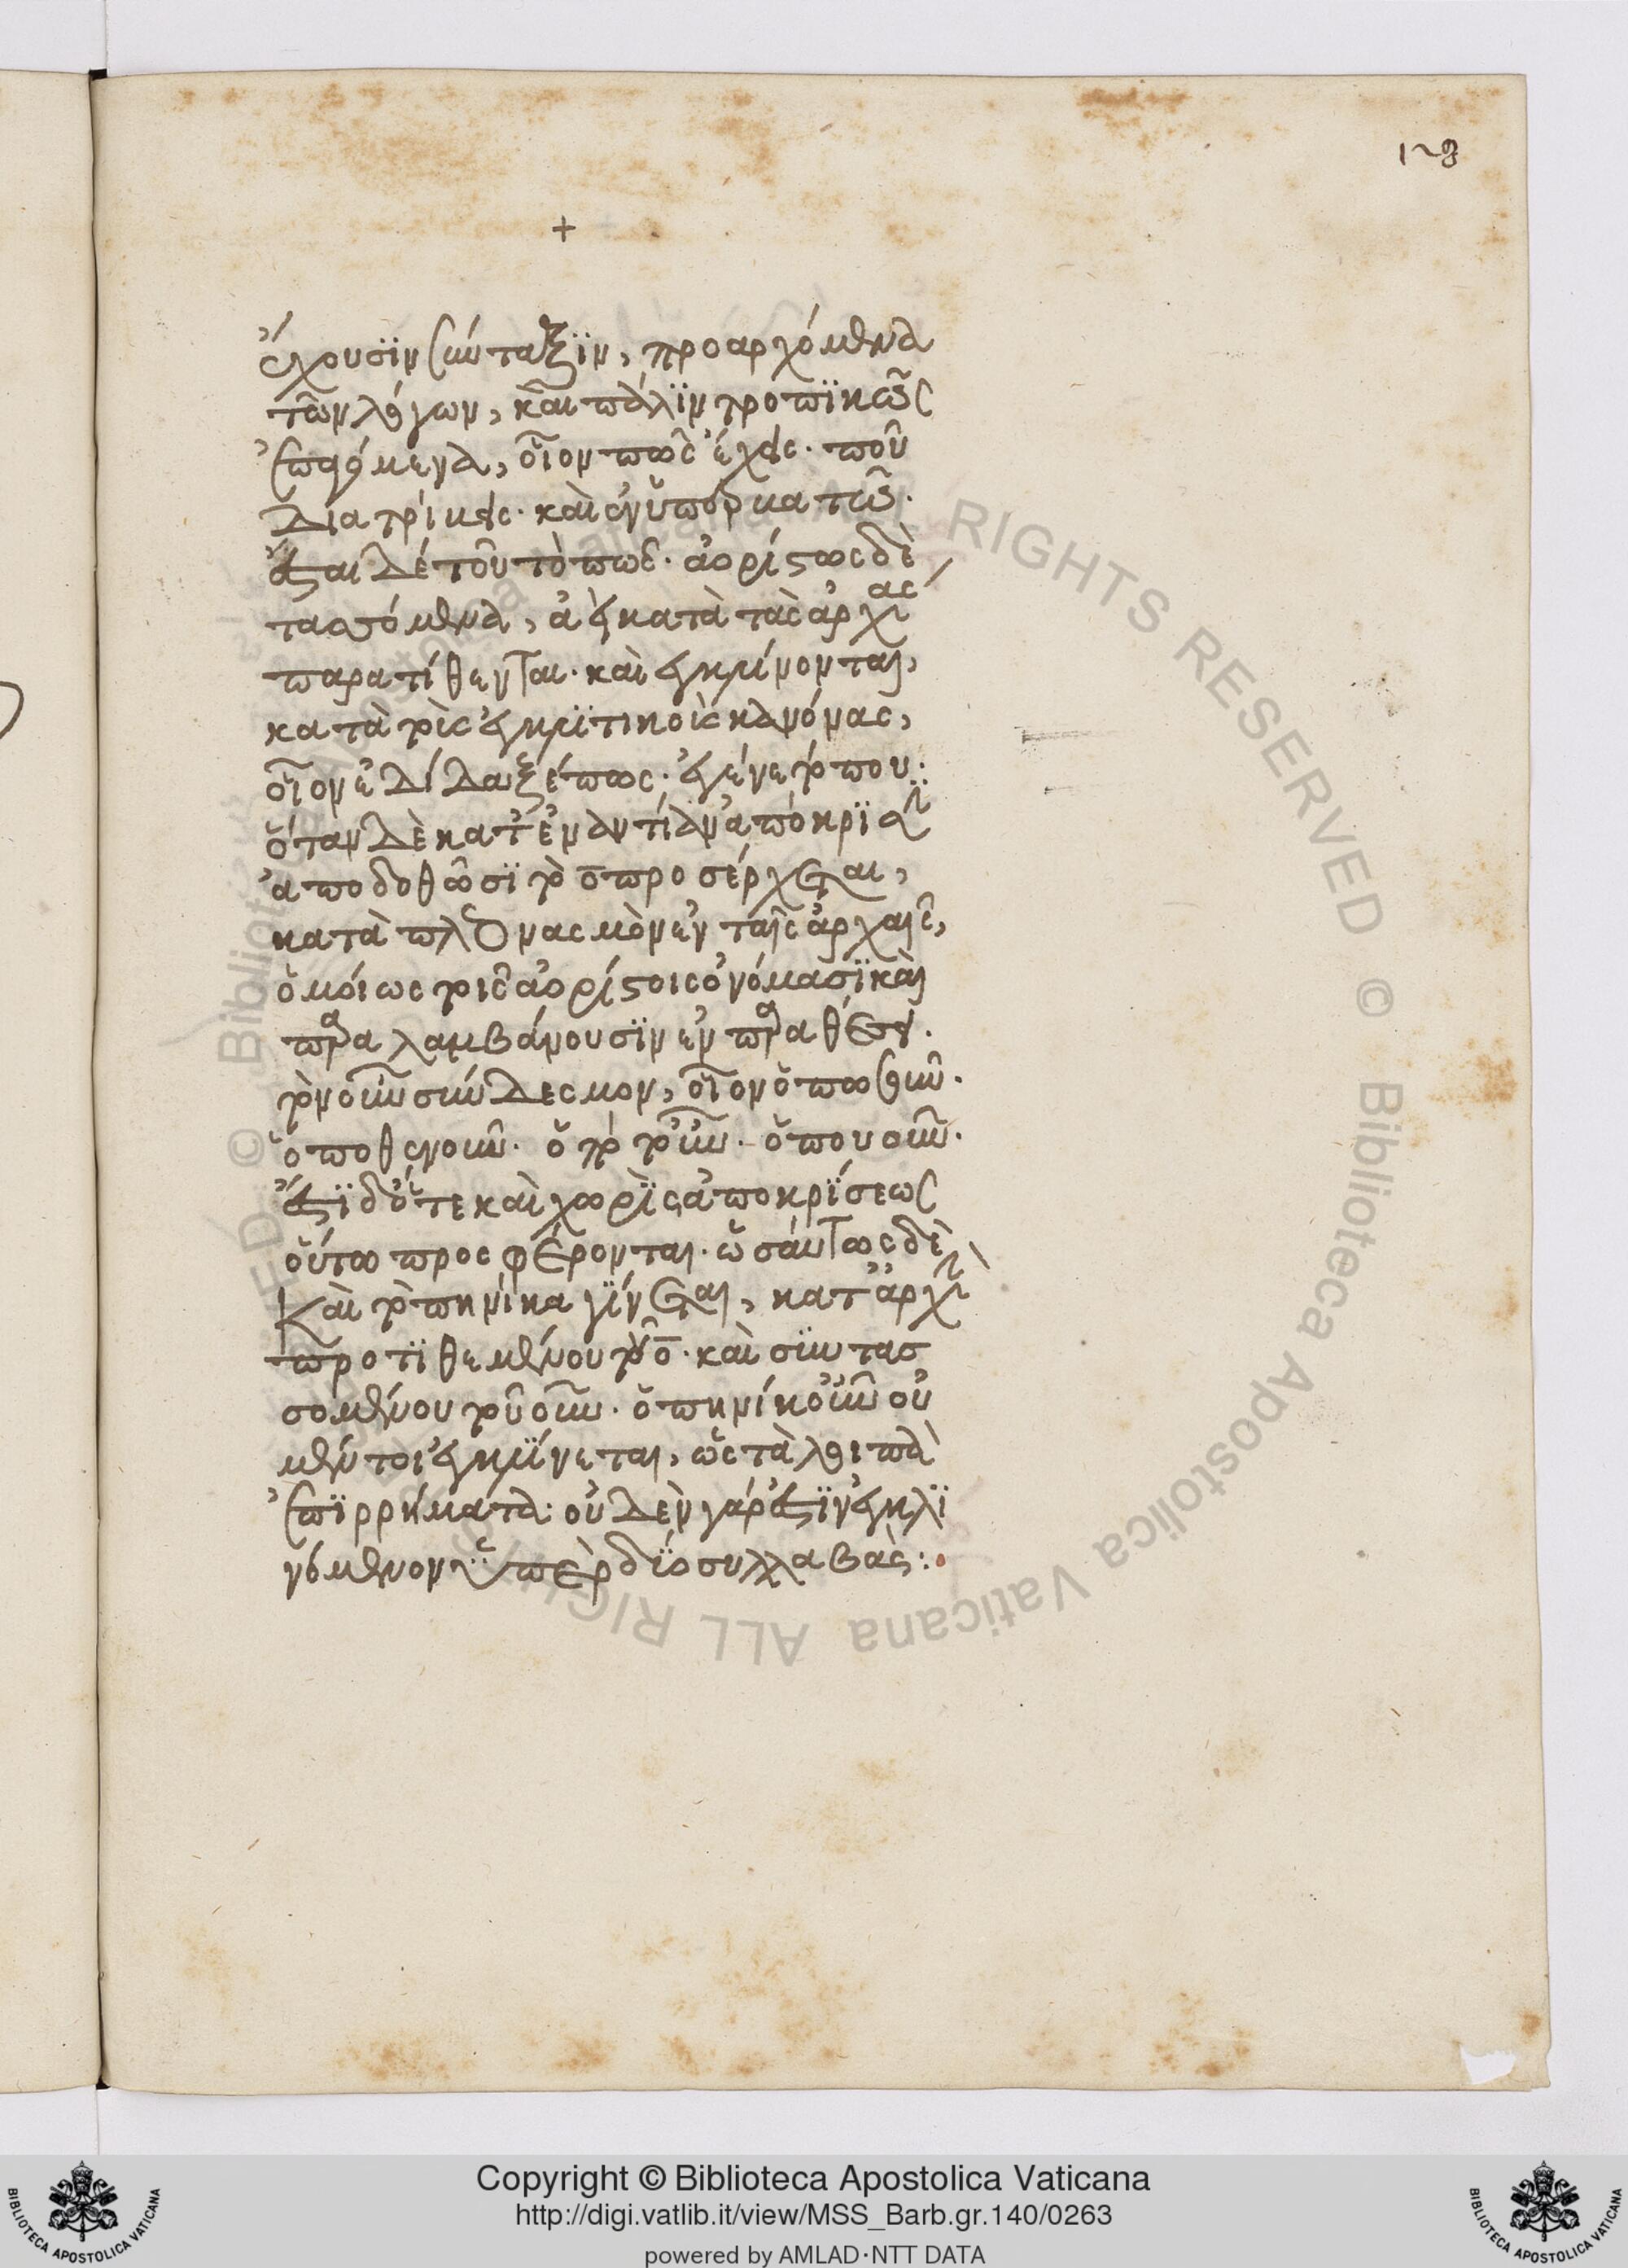 128
+
ἔχουσϊν σύνταξϊν, προαρχόμενα
τῶν λόγων, καὶ πάλϊν τροπϊκῶς
ἑπόμενα, οἷον πῶς ἔχεις· ποῦ
διατρίβεις· καὶ
δὲ τοῦτο πῶς· ἀορίστως δὲ
τασσόμενα, ἃ κατὰ τὰς ἀρχὰς
παρατίθενται· καὶ ἐγκλίνονται,
κατὰ τοὺς ἐγκλϊτικοὺς κανόνας,
οἷον ἐδίδαξέ πως· ἐγένετό που:
ὅταν δὲ κατ' ἐναντίαν ἀπόκρϊσιν
ἀποδοθῶσϊ τὸ ο προσέρχεται,
κατὰ πλεονασμὸν ἐν ταῖς ἀρχαῖς,
ὁμοίως τοῖς ἀορίστοις ὀνόμασϊ καὶ
παραλαμβάνουσϊν ἐν παραθέσει
τὸν οὖν σύνδεσμον, οἷον ὅπως οὖν·
ὅποθεν οὖν· ὅτε τ' οὖν· ὅπου οὖν·
ἔστϊ δ' ὅτε καὶ χωρϊς ἀποκρϊσεως
οὕτω προσφέρονται· ὡσαύτως δὲ
καὶ τὸ πηνίκα γίνεται, κατ' ἀρχὴν
προτϊθεμένου τοῦ ο· καὶ συντασ
σομένου τοῦ οὖν· ὁπηνίκ' οὖν οὐ
μέντοι ἐγκλϊνεται, ὡς τὰ λοιπὰ
ἐπϊρρήματα: οὐδὲν γάρ ἐστϊν ἐγκλϊ
νόμενον ὑπὲρ δύο συλλαβὰς:
Copyright © Biblioteca Apostolica Vaticana
http://digi.vatlib.it/view/MSS_Barb.gr.140/0263
powered by AMLAD·NTT DATA
BIBLIOTECA APOSTOLICA VATICANA
BIBLIOTECA APOSTOLICA VATICANA